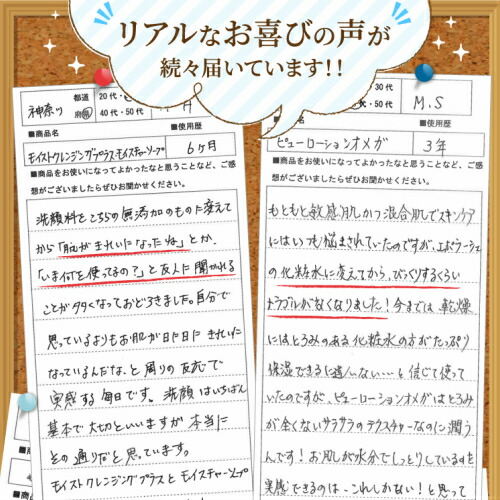 リアルなお喜びの声が
続々届いています!!
都道
府県
20代・
40代・50代
神奈川
■商品名
■使用歴
モイストクレンジングプラス モイスチャーソープ
6ヶ月
■商品をお使いになってよかったなと思うことなど、ご感
想がございましたらぜひお聞かせください。
洗顔料をこちらの無添加のものに変えて
から「肌がきれいになったね」とか、
「いま何を使ってるの?」と友人に聞かれる
ことが多くなっておどろきました。自分で
思っているよりもお肌が日に日にきれいに
なっているんだな、と周りの反応で
実感する毎日です。洗顔はいちばん
基本で大切といいますが本当に
その通りだと思っています。
モイストクレンジングプラスとモイスチャーソープ
30代
代・50代
M.S
■商品名
■使用歴
ピューローションオメガ
3年
■商品をお使いになってよかったなと思うことなど、ご感
想がございましたらぜひお聞かせください。
もともと敏感肌かつ混合肌でスキンケア
にはいつも悩まされていたのですが、エポラーシェ
の化粧水に変えてから、びっくりするくらい
トラブルがなくなりました!今までは乾燥
にはとろみのある化粧水の方がたっぷり
保湿できるに違いない…と信じて使って
いたのですが、ピューローションオメガはとろみ
が全くないサラサラのテクスチャーなのに潤う
んです!お肌が水分でしっとりしているのを
実感できるのは…これしかない!と思って